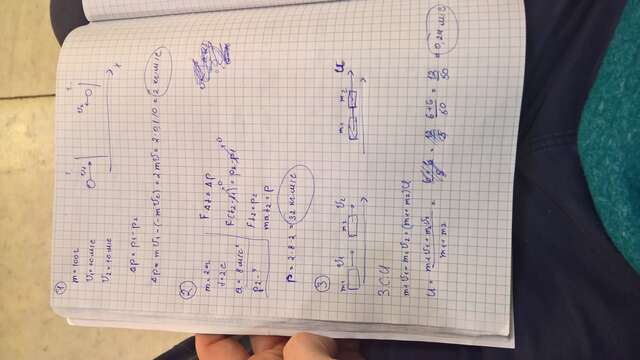 1
m = 100г
V₁ = 10 м/с
V₂ = 10 м/с
Δp = p₁ - p₂
Δp = mV₁ - (-mV₂) = 2mV = 2·0,1·10 = 2 кг·м/с
2
m = 2кг
t = 2с
a = 8 м/с²
p₂ - ?
FΔt = Δp
F(t₂ - t₁) = p₂ - p₁
0 0
Ft₂ = p₂
mat₂ = p
p = 2·8·2 = 32 кг·м/с
3
m₁ V₁ m₂ V₂ m₁ m₂ U
З.С.И
m₁V₁ + m₂V₂ = (m₁ + m₂)U
U = (m₁V₁ + m₂V₂)/(m₁ + m₂) = = (6+6)/50 = 12/50 = 0,24 м/с